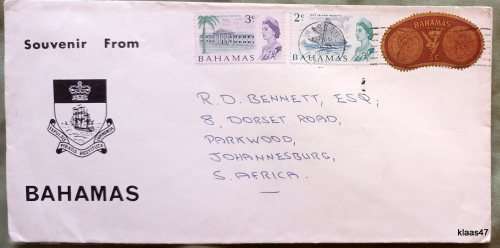 Souvenir From
BAHAMAS
3c
BAHAMAS
2c
BAHAMAS
BAHAMAS
R.D. BENNETT, ESQ;
8, DORSET ROAD,
PARKWOOD,
JOHANNESBURG,
S. AFRICA.
klaas47